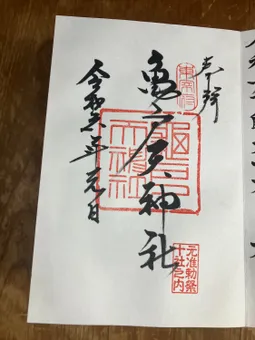 奉拝
東宰府
亀戸天神社
亀戸天神社
元准勅祭
十社之内
令和六年元日